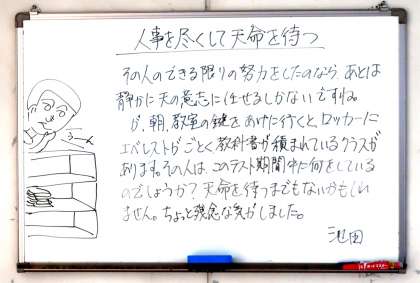 人事を尽くして天命を待つ
その人のできる限りの努力をしたのなら、あとは
静かに天の意志に任せるしかないですね。
が、朝、教室の鍵をあけに行くと、ロッカーに
エベレストがごとく教科書が積まれているクラスが
あります。その人は、このテスト期間中に何をしている
のでしょうか?天命を待つまでもないかもしれ
ません。ちょっと残念な気がしました。
池田
うーん